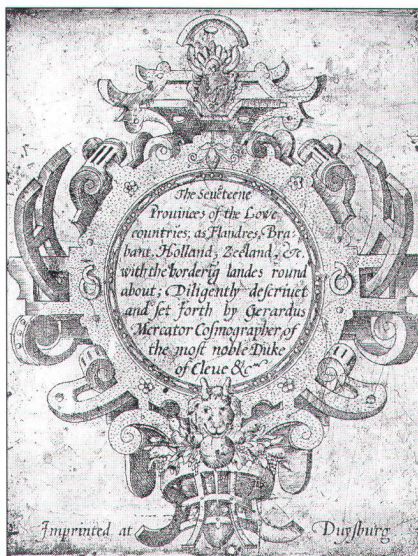 The Seuẽteene
Prouinces of the Lowe
countries; as Flandres, Bra
bant, Holland, Zeeland, &c.
with the borderĩg landes round
about; Diligently descriuet
and set forth by Gerardus
Mercator Cosmographer, of
the most noble Duke
of Cleue &c
Imprinted at Duysburg